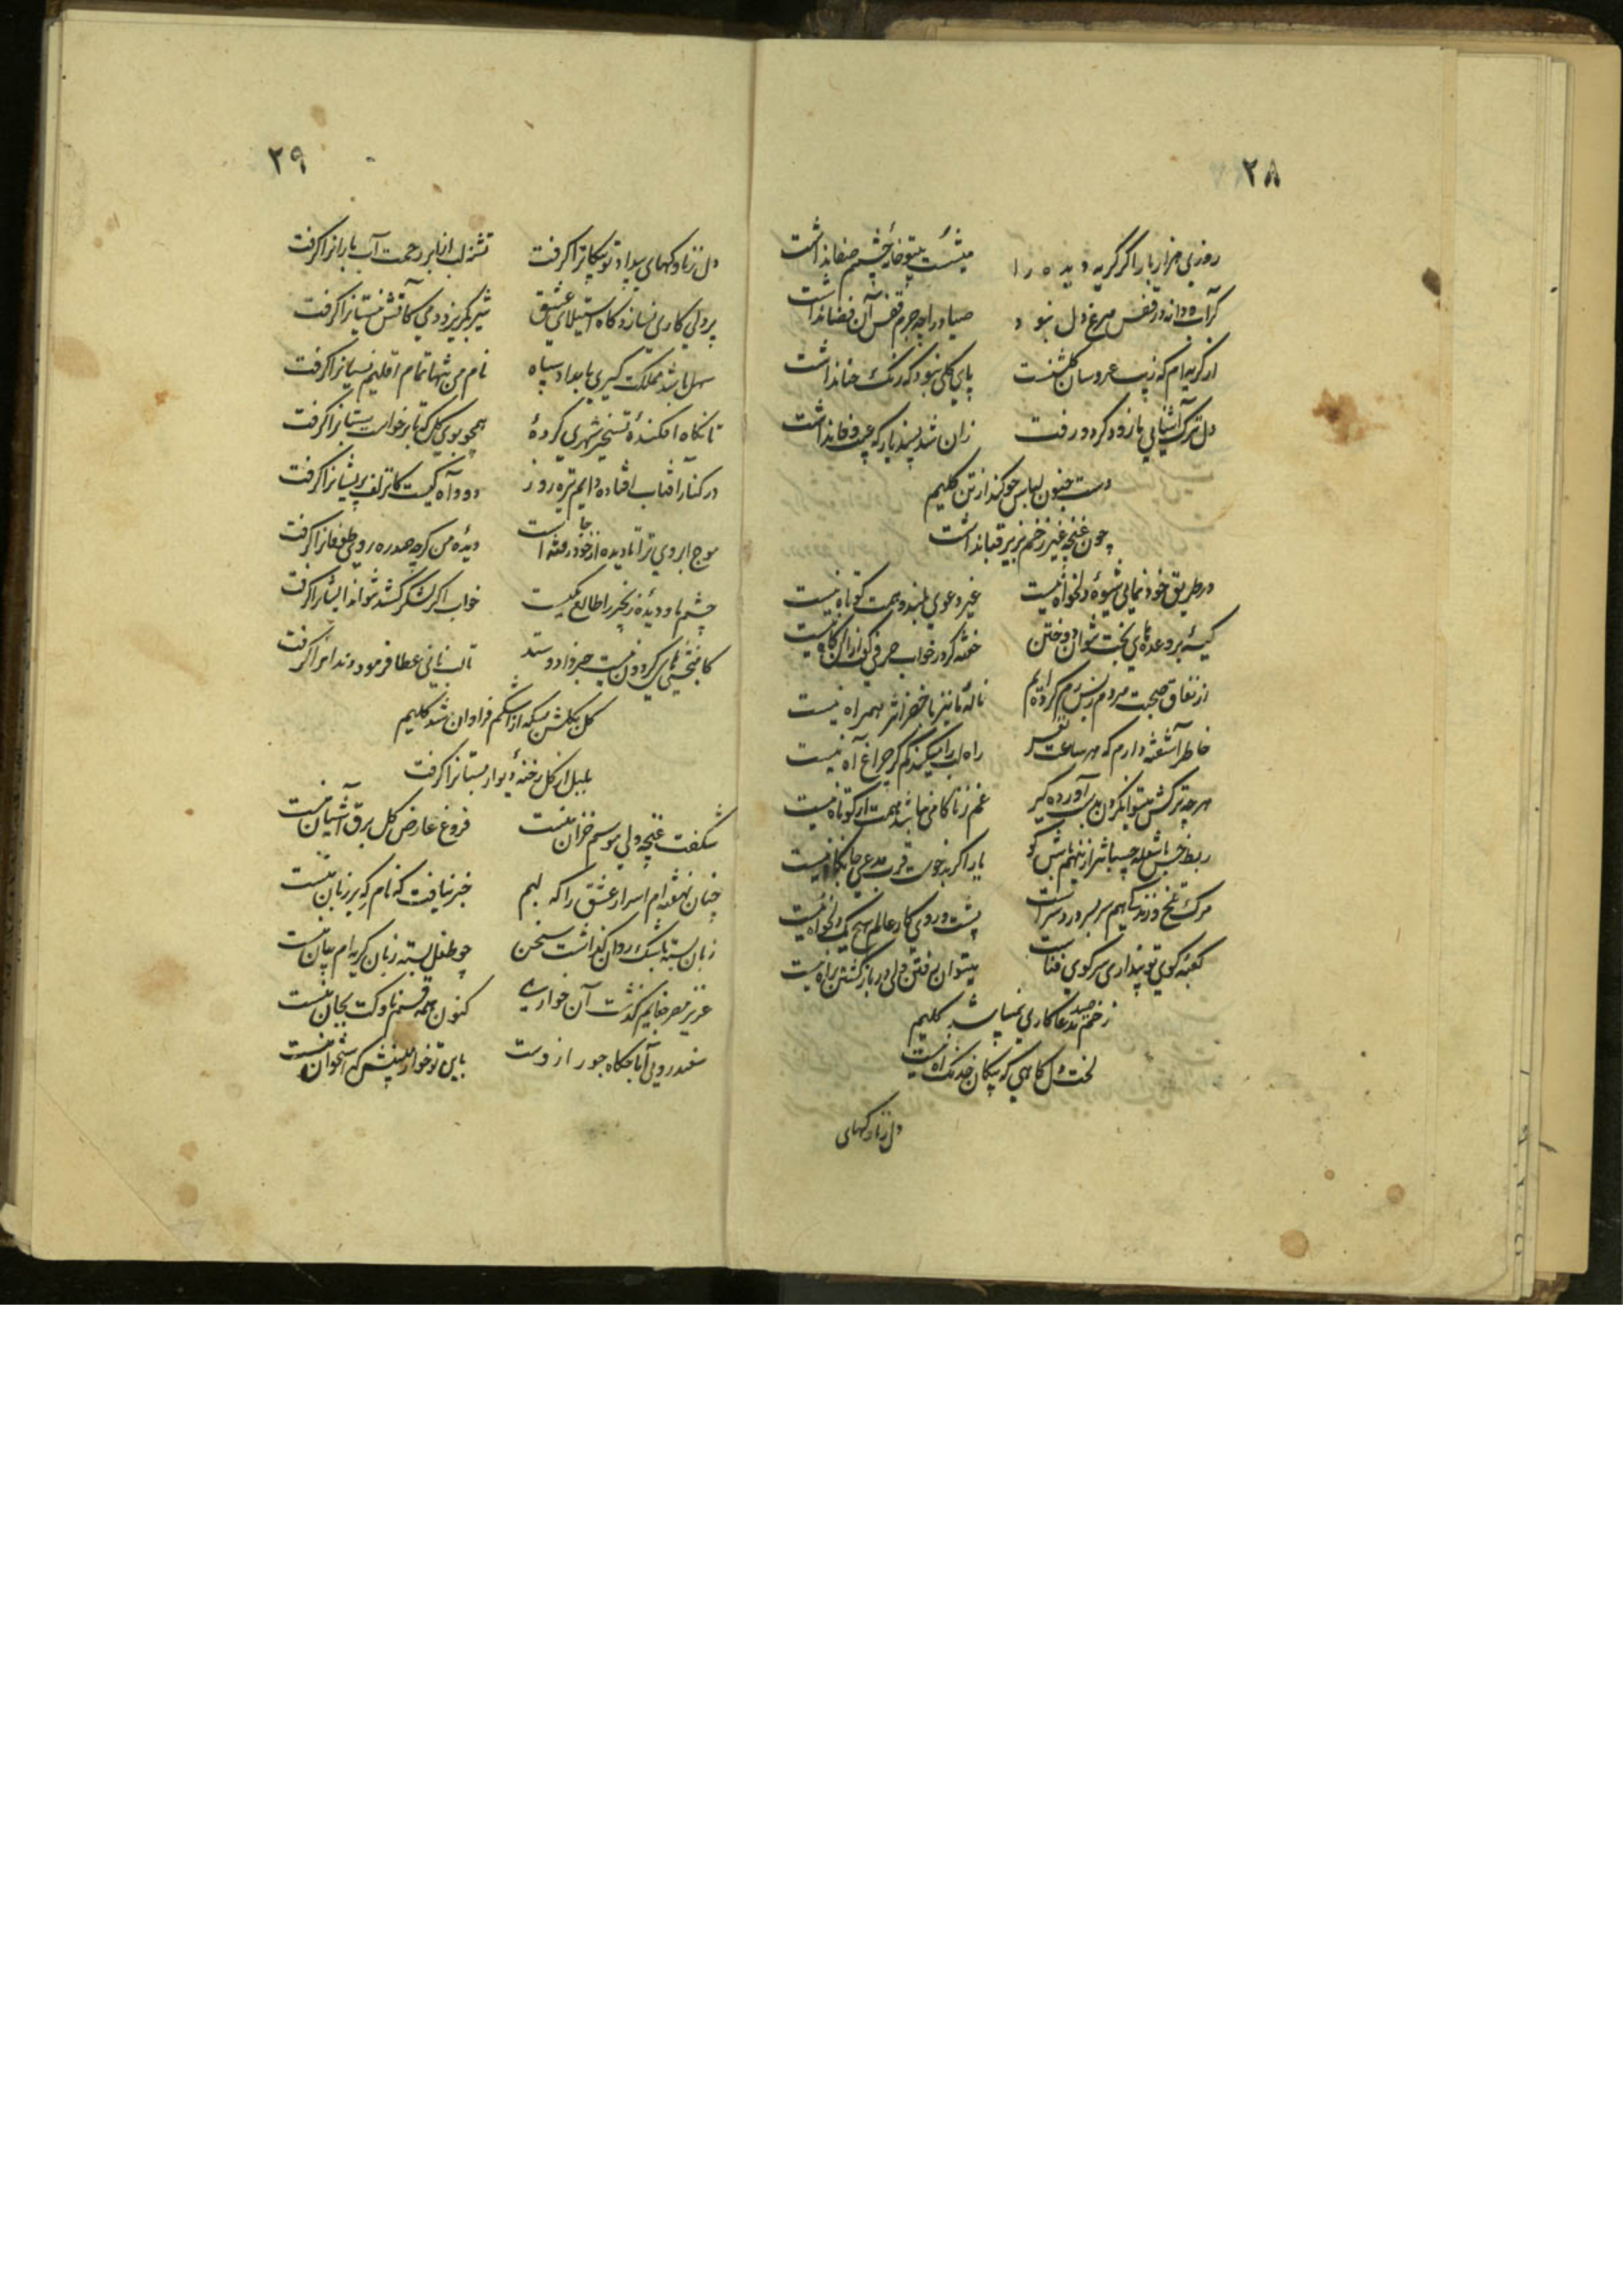 ۲۸
روزی هزار بار اگر گریه دیده را میشست بیتو خانهٔ چشمم صفا نداشت
گر آب و دانه در قفس مرغ دل نبود صیاد را چه جرم قفس آن فضا نداشت
از گریه‌ام که زیب عروسان گلشنست پای گلی نبود که رنگ حنا نداشت
دل ترک آشنایی ما زود کرد و رفت زان شد پسند یار که عیب وفا نداشت
دست جنون لباس چو کند از تن کلیم
چون غنچه غیر زخم بزیر قبا نداشت
در طریق خود نمایی شیوهٔ دلخواه نیست غیر دعوی بلند و همت کوتاه نیست
کیسه بر وعده‌های بخت نتوان دوختن خفته گر در خواب حرفی گوید زان آگاه نیست
از نفاق صحبت مردم ز بس رم کرده‌ایم نالهٔ ما نیز با خضر اثر همراه نیست
خاطر آشفته دارم که هر ساعت نفس راه لب را میکند گم گر چراغ آه نیست
هر چه ترکش میتوان کردن بدست آورده گیر غم ز ناکامی نباشد همت ار کوتاه نیست
ربط خس با شعله چسباندن از بنهم باش گو یار اگر بدخوست قرب مدعی جانکاه نیست
مرگ تلخ و زندگی هم سر بسر درد سر است پشت و روی کار عالم هیچ یک دلخواه نیست
کعبهٔ کوی تو پنداری سر کوی فناست میتوان رفتن ولی در باز گشتن راه نیست
زخم صید مدعا کاری نمیباشد کلیم
لخت دل گاهی که پیکان خدنگ آه نیست
دل ز ناوکهای
۲۹
دل ز ناوکهای بیداد تو پیکانرا گرفت تشنه لب از ابر رحمت آب بارانرا گرفت
پر دلی کاری نسازد گاه استیلای عشق شیر بگریزد دمی کآتش نیستانرا گرفت
سهل باشد مملکت گیری بامداد سپاه نام من تنها تمام اقلیم نسیانرا گرفت
تا نگاه افکندهٔ تسخیر شهری کردهٔ همچو بوی گل که تا برخواست بستانرا گرفت
در کنار آفتاب افتاده دایم تیره روز دود آه کیست کان زلف پریشانرا گرفت
موج ابروی ترا تا دیده از جا خود رفته است دیدهٔ من گرچه صد ره روی طوفانرا گرفت
چشم ما و دیدهٔ زنجیر را طالع یکیست خواب اگر لشکر کشد نتواند ایشانرا گرفت
کامبخشی های گردون نیست جز داد و ستد تا لب نانی عطا فرمود دندانرا گرفت
گل بگلشن بسکه از اشکم فراوان شد کلیم
بلبل از گل رخنهٔ دیوار بستانرا گرفت
شکفت غنچه ولی موسم خزان منست فروغ عارض گل برق آشیان منست
چنان نهفته‌ام اسرار عشق را که لبم خبر نیافت که نام که بر زبان منست
زبان بسته باشک روان گذاشت سخن چو طفل بسته زبان گریه‌ام بیان منست
عزیز مصر جفایم گذشت آن خواری کنون همه قسم ناوکت بجان منست
سفید رویی آماجگاه جور از وست باین تو خوار مبینش که استخوان منست